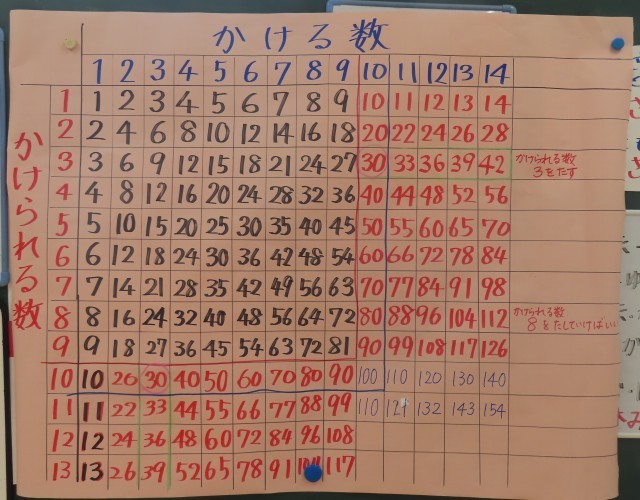 かける数
1 2 3 4 5 6 7 8 9 10 11 12 13 14
かけられる数
1 1 2 3 4 5 6 7 8 9 10 11 12 13 14
2 2 4 6 8 10 12 14 16 18 20 22 24 26 28
3 3 6 9 12 15 18 21 24 27 30 33 36 39 42 かけられる数
3をたす
4 4 8 12 16 20 24 28 32 36 40 44 48 52 56
5 5 10 15 20 25 30 35 40 45 50 55 60 65 70
6 6 12 18 24 30 36 42 48 54 60 66 72 78 84
7 7 14 21 28 35 42 49 56 63 70 77 84 91 98
8 8 16 24 32 40 48 56 64 72 80 88 96 104 112 かけられる数
8をたしていけばいい
9 9 18 27 36 45 54 63 72 81 90 99 108 117 126
10 10 20 30 40 50 60 70 80 90 100 110 120 130 140
11 11 22 33 44 55 66 77 88 99 110 121 132 143 154
12 12 24 36 48 60 72 84 96 108
13 13 26 39 52 65 78 91 117